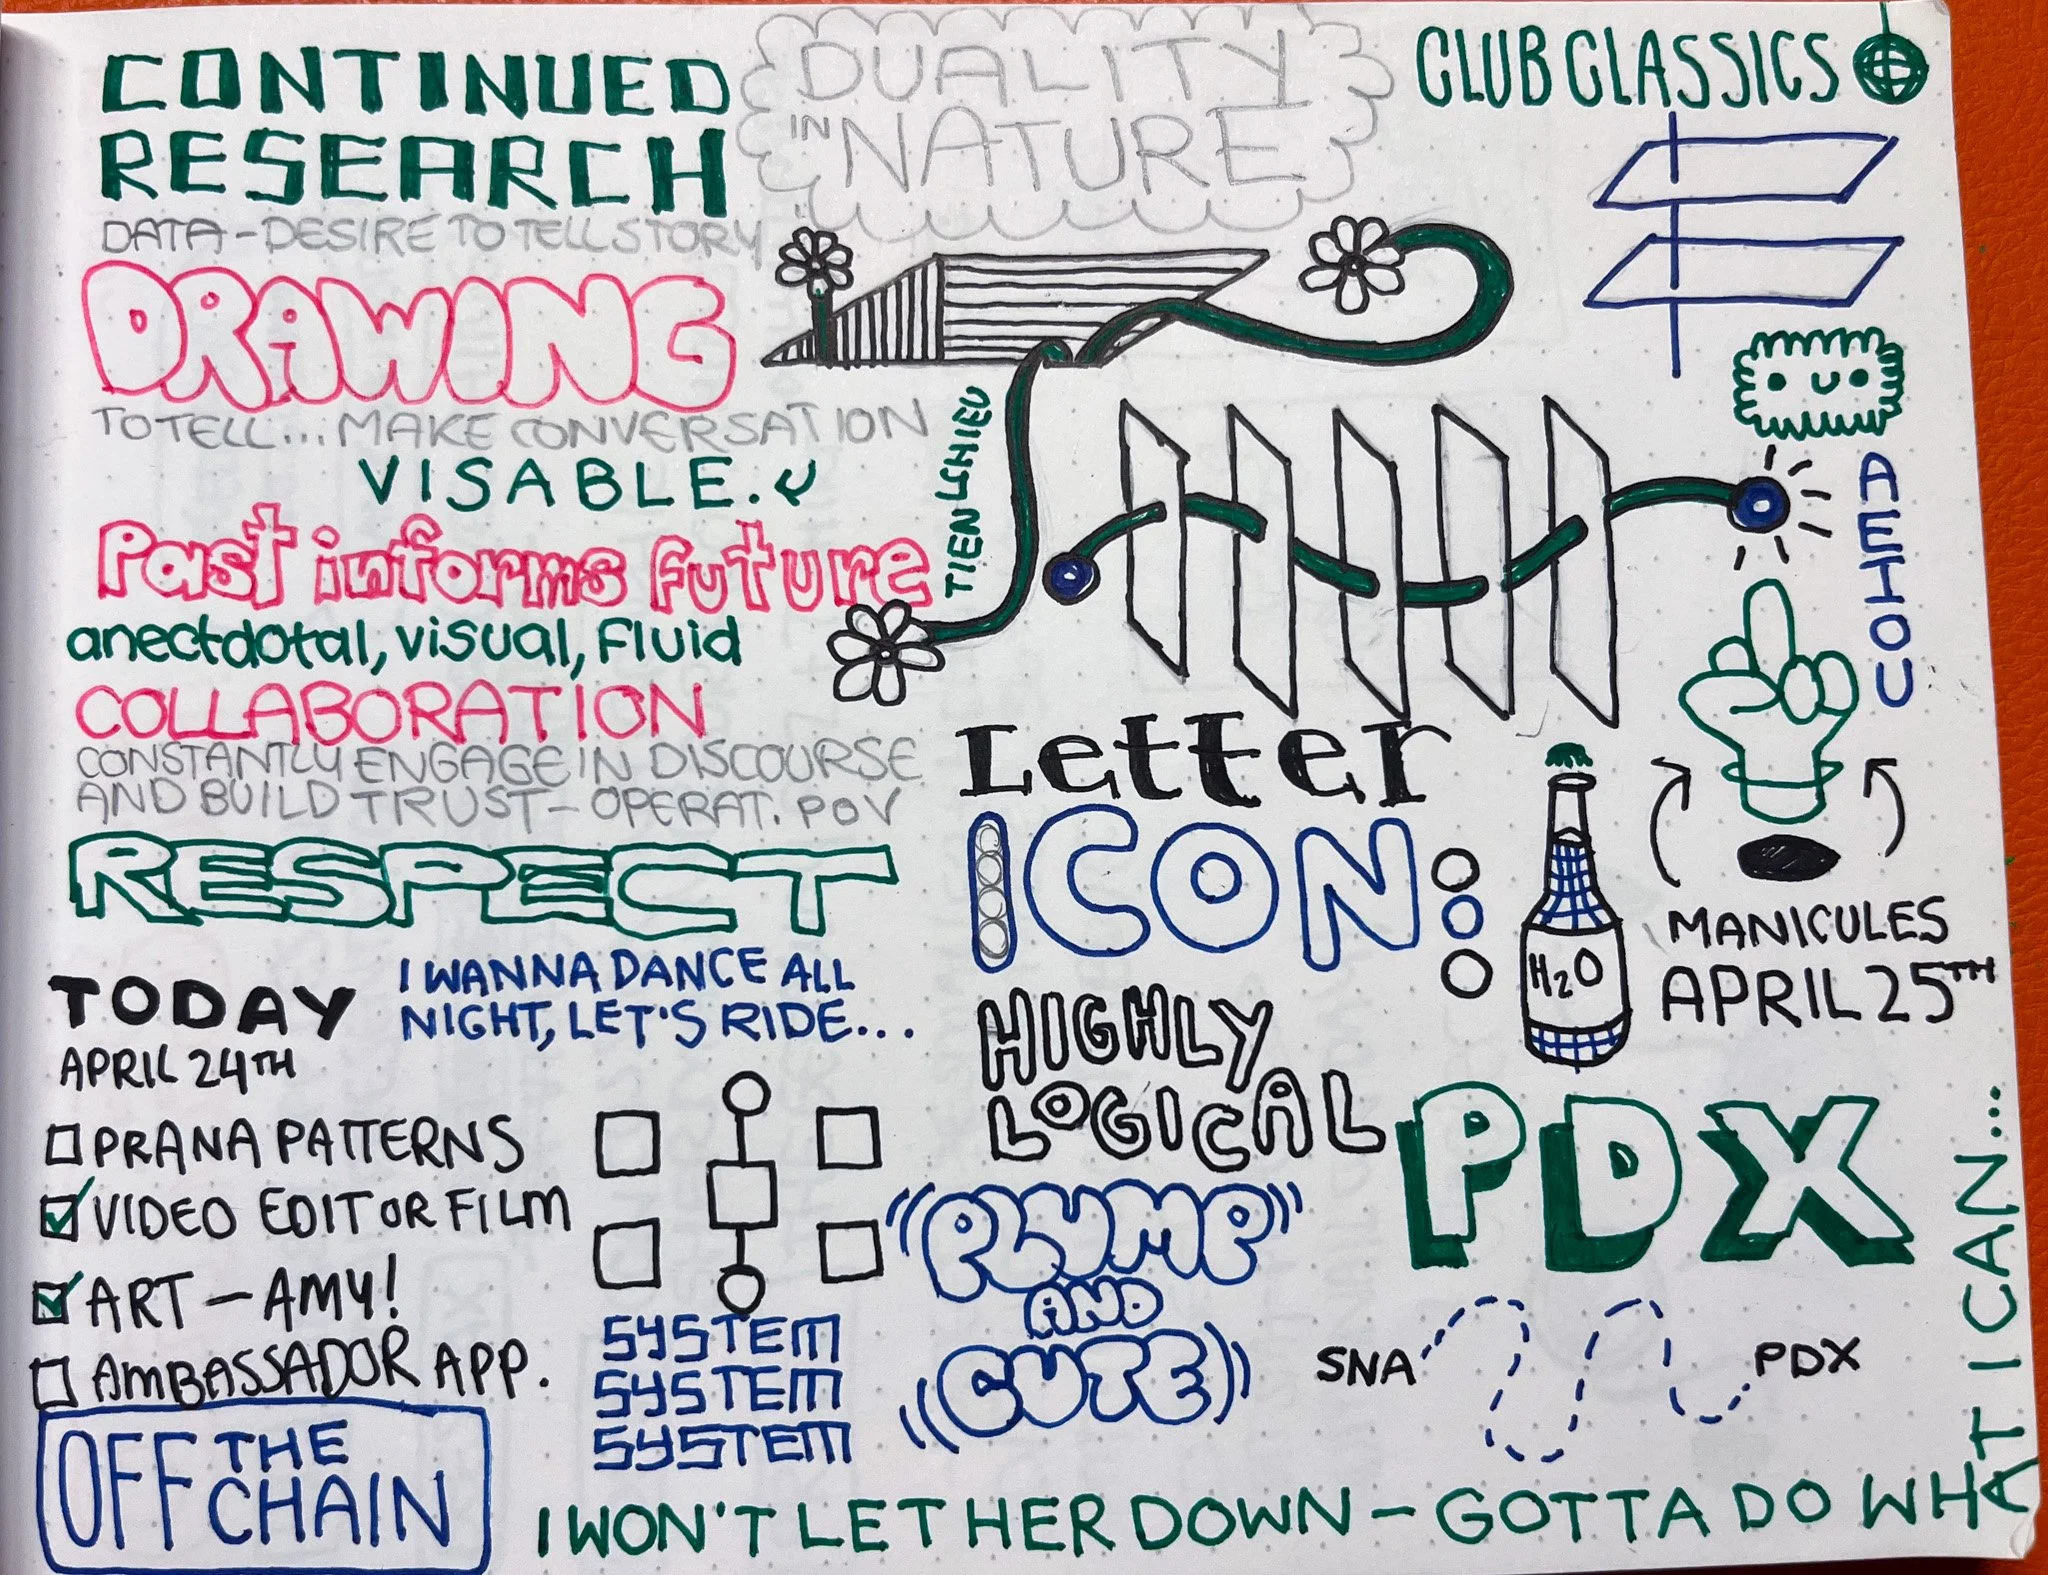 CONTINUED
RESEARCH
DATA - DESIRE TO TELL STORY
DRAWING
TO TELL... MAKE CONVERSATION
VISABLE.
Past informs future
anectdotal, visual, fluid
COLLABORATION
CONSTANTLY ENGAGE IN DISCOURSE
AND BUILD TRUST - OPERAT. POV
RESPECT
TODAY
APRIL 24TH
I WANNA DANCE ALL
NIGHT, LET'S RIDE...
PRANA PATTERNS
VIDEO EDIT OR FILM
ART - AMY!
AMBASSADOR APP.
OFF THE
CHAIN
SYSTEM
SYSTEM
SYSTEM
DUALITY
IN NATURE
CLUB CLASSICS
TIEN
AEIOU
Letter
ICON:
H2O
MANICULES
APRIL 25TH
HIGHLY
LOGICAL
PLUMP
AND
CUTE
PDX
SNA
PDX
I WON'T LET HER DOWN - GOTTA DO WHAT I CAN...